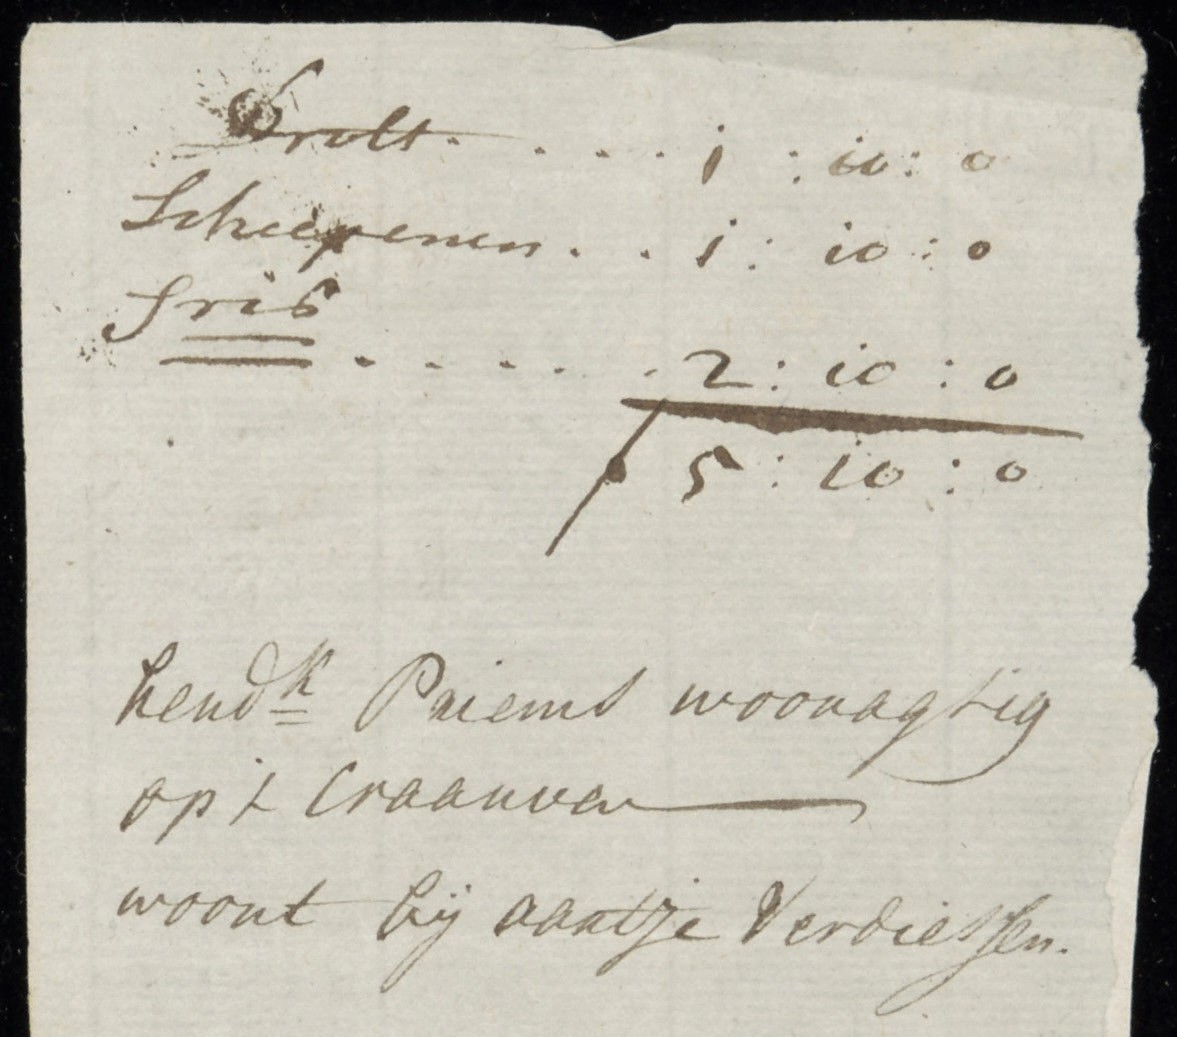 Drolt. . . . . 1 : 10 : 0
Scheepenen . . 1 : 10 : 0
Fris
. . . . . . 2 : 10 : 0
5 : 10 : 0
hendk Priems woonagtig
op t Craanven
woont bij aantje Verdiessen.